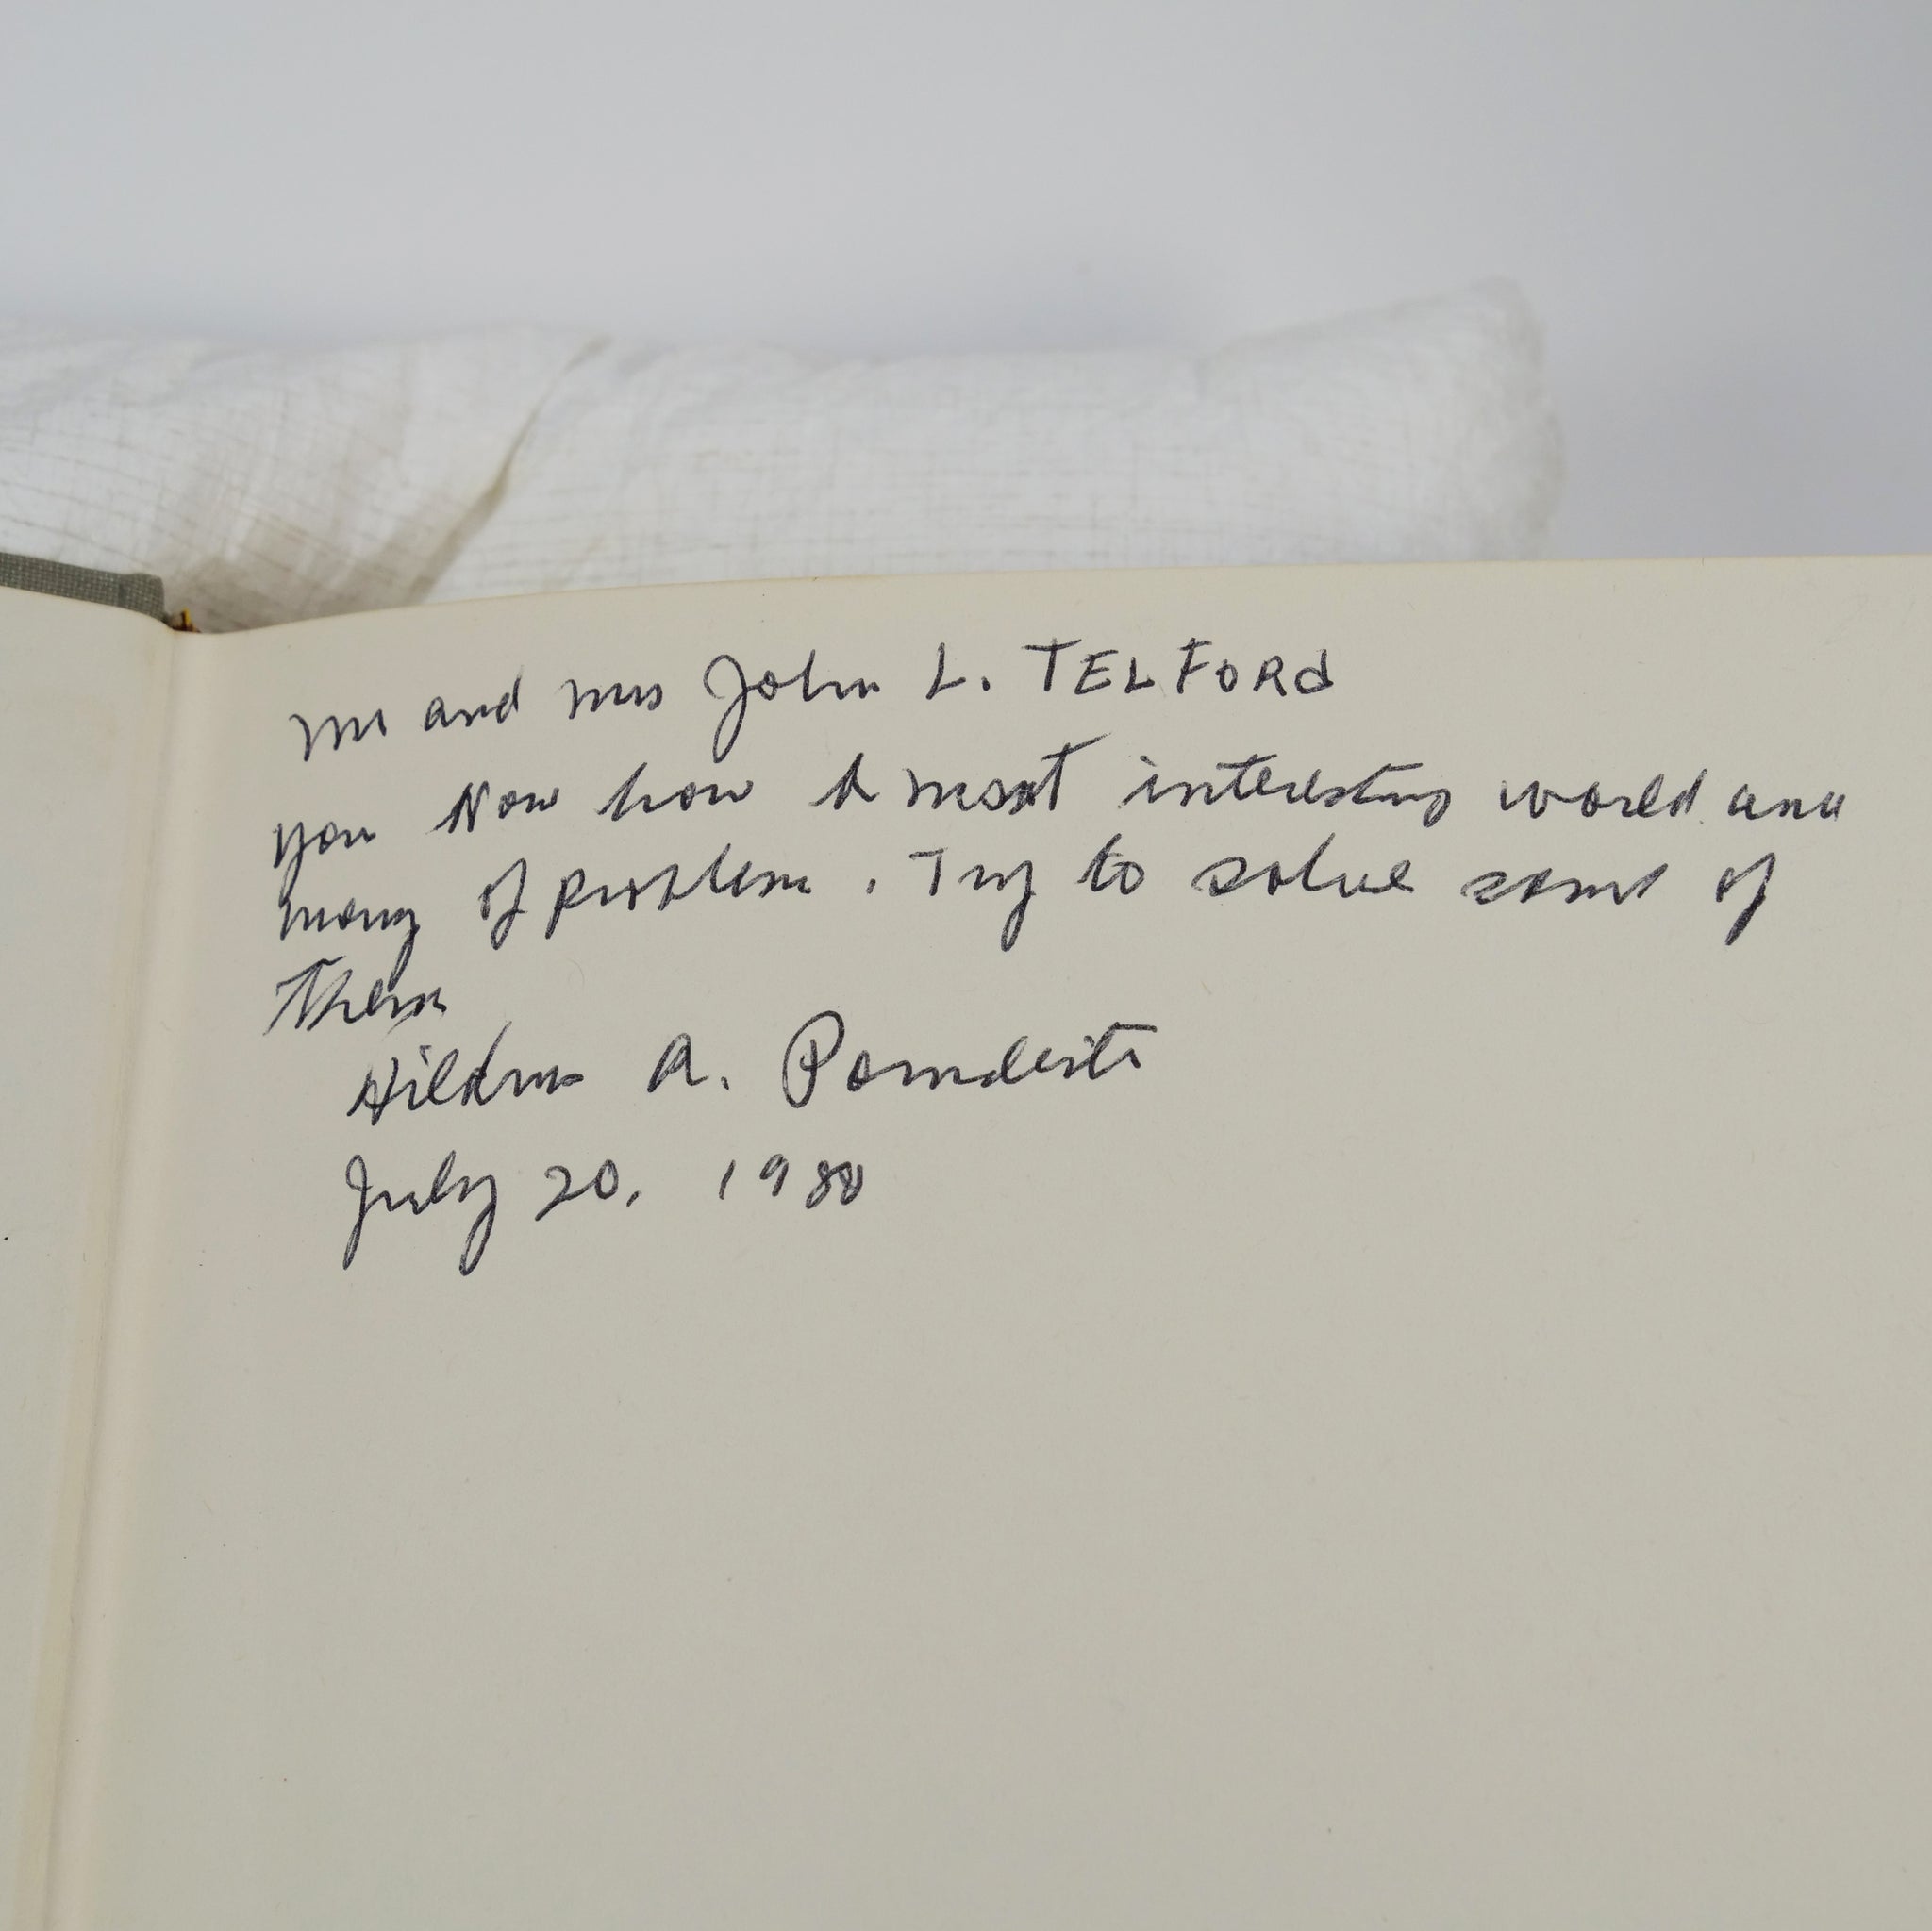 Mr and Mrs John L. TELFORd
you Now how A most interesting world and
many of problem. Try to solve some of
them
Hildrus A. Poindexter
July 20, 1980